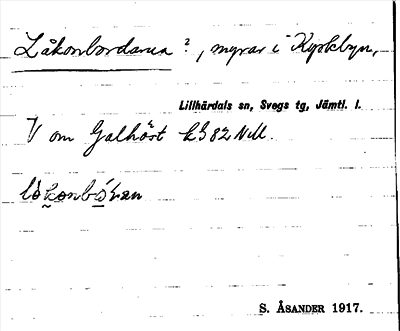 Låkonbordarna?, myrar i Kyrkbyn,
Lillhärdals sn, Svegs tg, Jämtl. l.
V om Galhöst
S. ÅSANDER 1917.